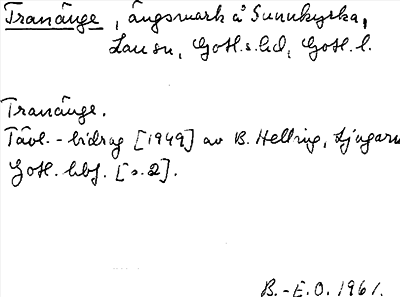 Tranänge, ängsmark å Sunnkyrka,
Lau sn, Gotl. s. hd, Gotl. l.
Tranänge.
Tävl.-bidrag [1949] av B. Hellring, Ljugarn
Gotl. hbf. [s. 2].
B.-E.O. 1961.